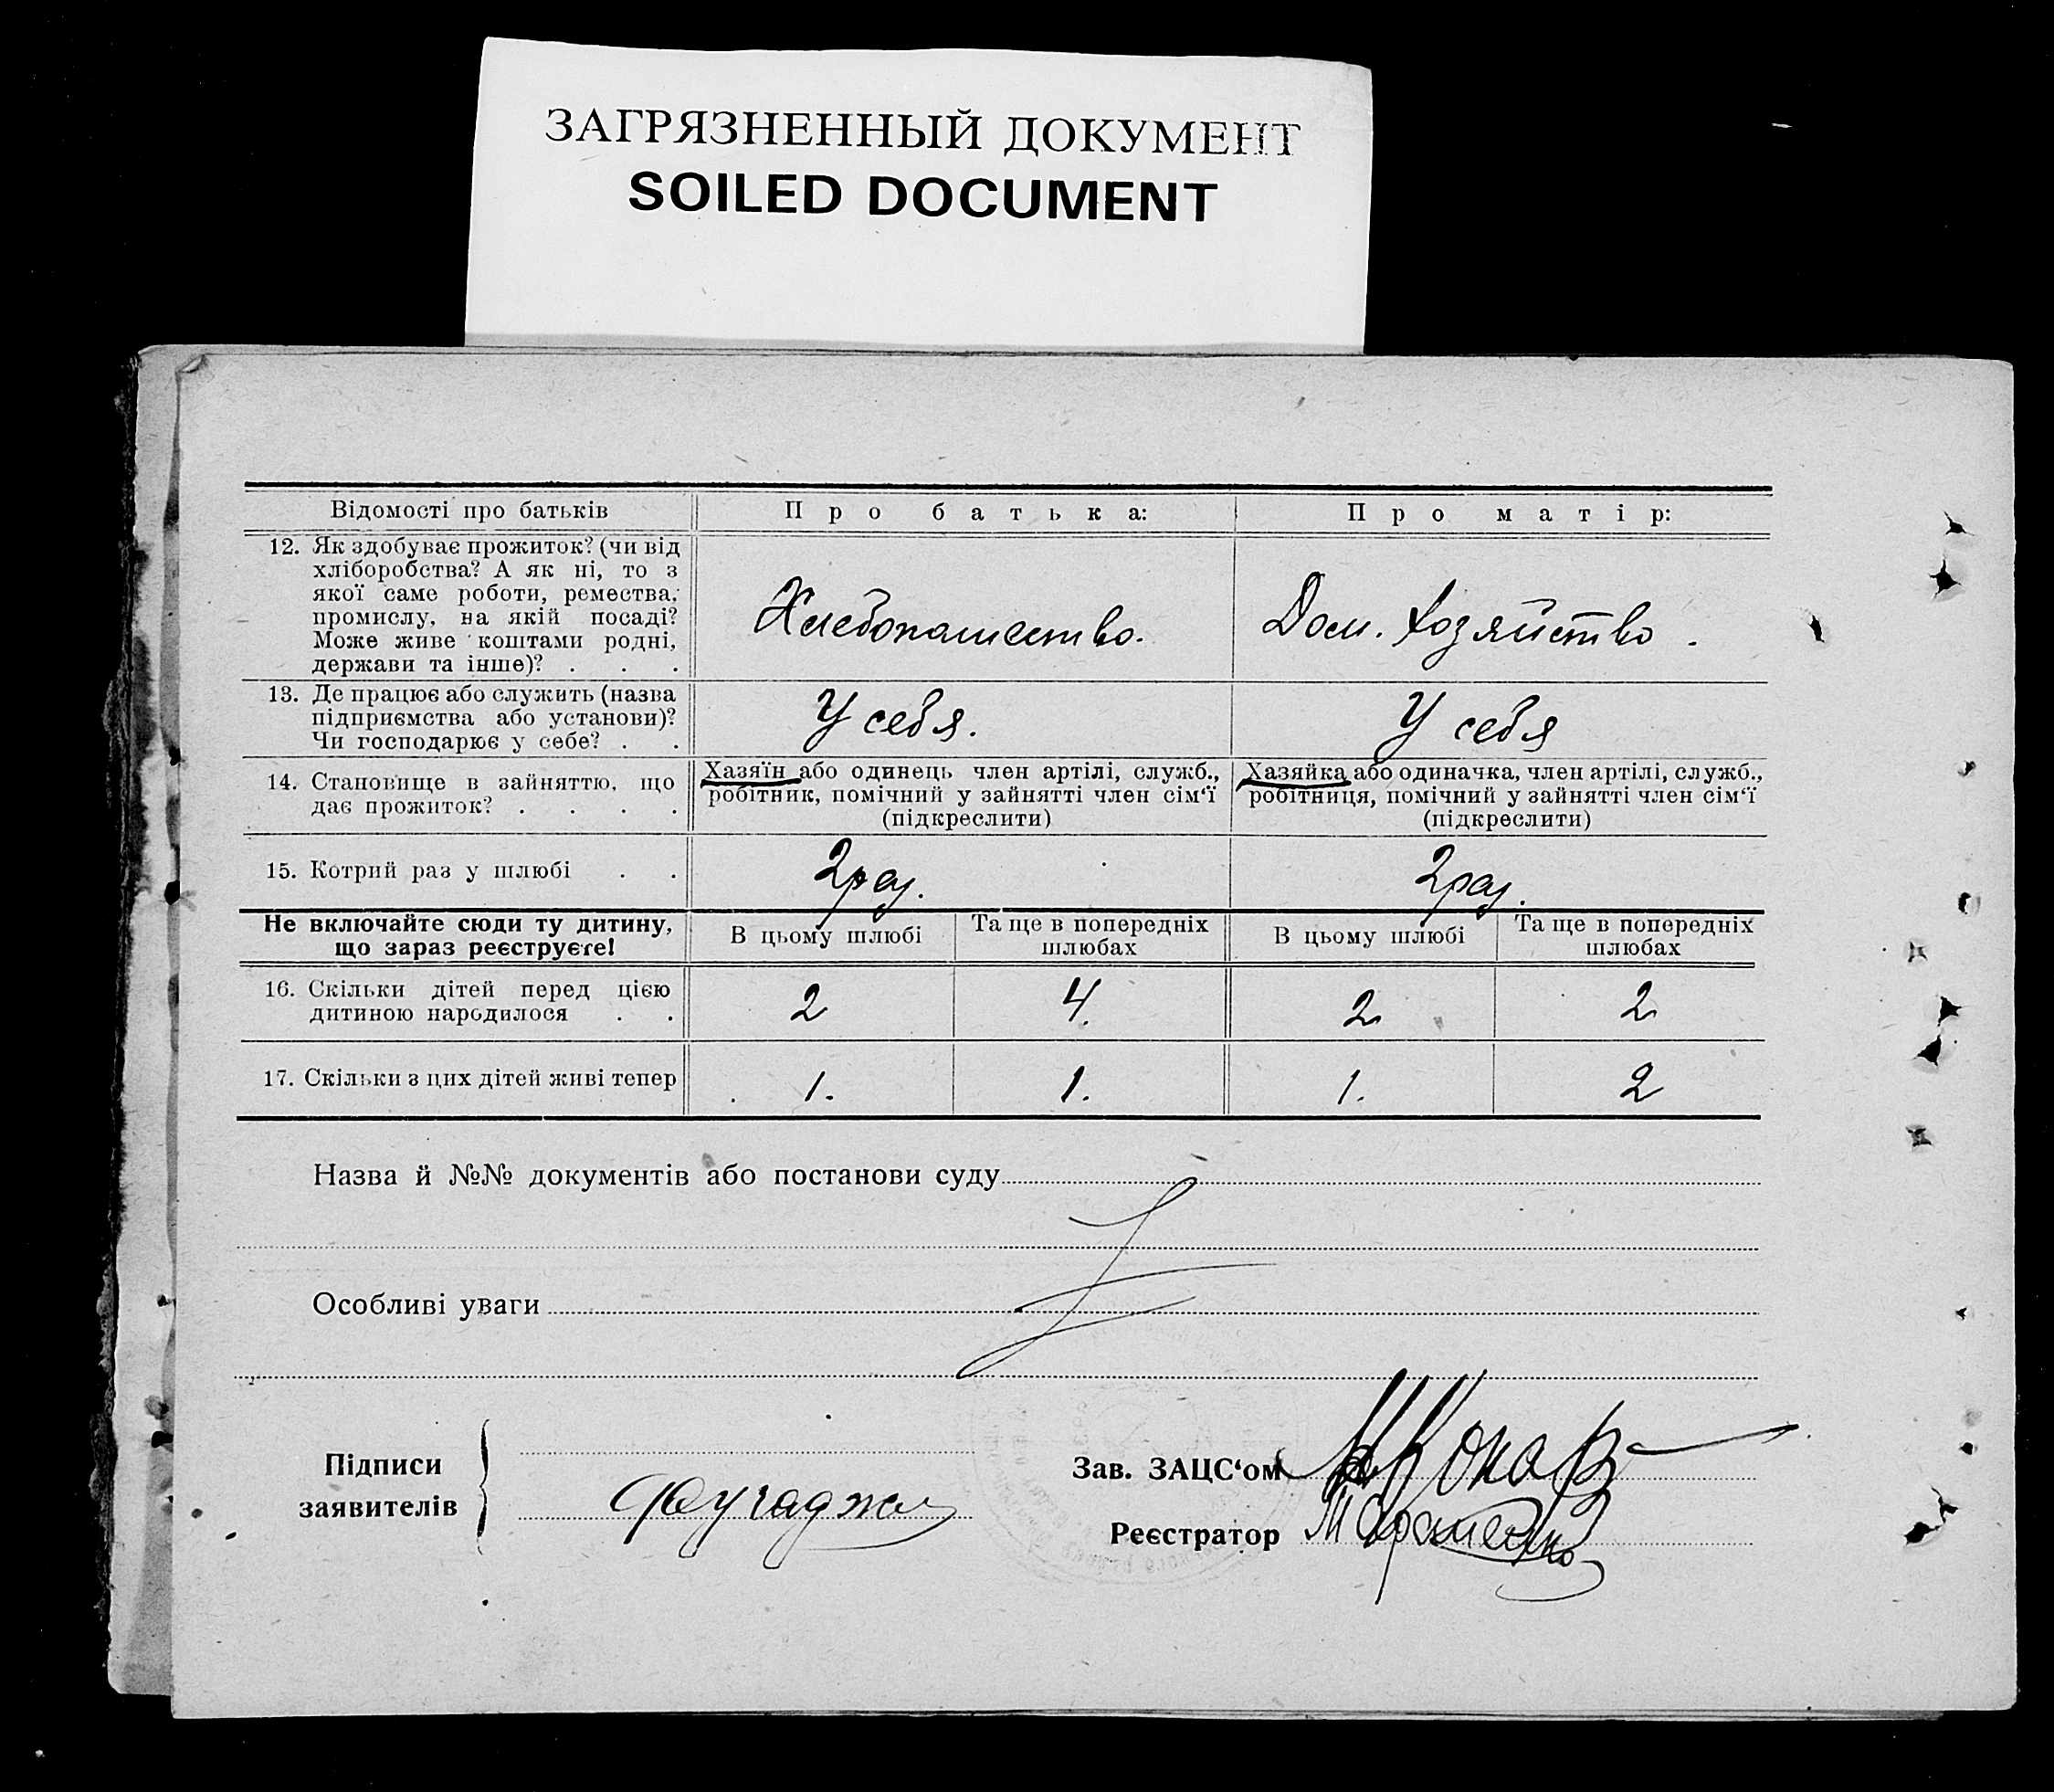 ЗАГРЯЗНЕННЫЙ ДОКУМЕНТ
SOILED DOCUMENT
Відомості про батьків
Про батька:
Про матір:
12. Як здобуває прожиток? (чи від
хліборобства? А як ні, то з
якої саме роботи, ремества,
промислу, на якій посаді?
Може живе коштами родні,
держави та інше)? . . .
Хлебопашество.
Дом. хозяйство.
13. Де працює або служить (назва
підприємства або установи)?
Чи господарює у себе? . .
У себя.
У себя
14. Становище в зайняттю, що
дає прожиток? . . . .
Хазяїн або одинець член артілі, служб.,
робітник, помічний у зайнятті член сім‘ї
(підкреслити)
Хазяйка або одиначка, член артілі, служб.,
робітниця, помічний у зайнятті член сім‘ї
(підкреслити)
15. Котрий раз у шлюбі . .
2 раз.
2 раз.
Не включайте сюди ту дитину,
що зараз реєструєте!
В цьому шлюбі
Та ще в попередніх
шлюбах
В цьому шлюбі
Та ще в попередніх
шлюбах
16. Скільки дітей перед цією
дитиною народилося . .
2
4.
2
2
17. Скільки з цих дітей живі тепер
1.
1.
1.
2
Назва й №№ документів або постанови суду
Особливі уваги
Підписи
заявителів
Зав. ЗАЦС‘ом
Реєстратор